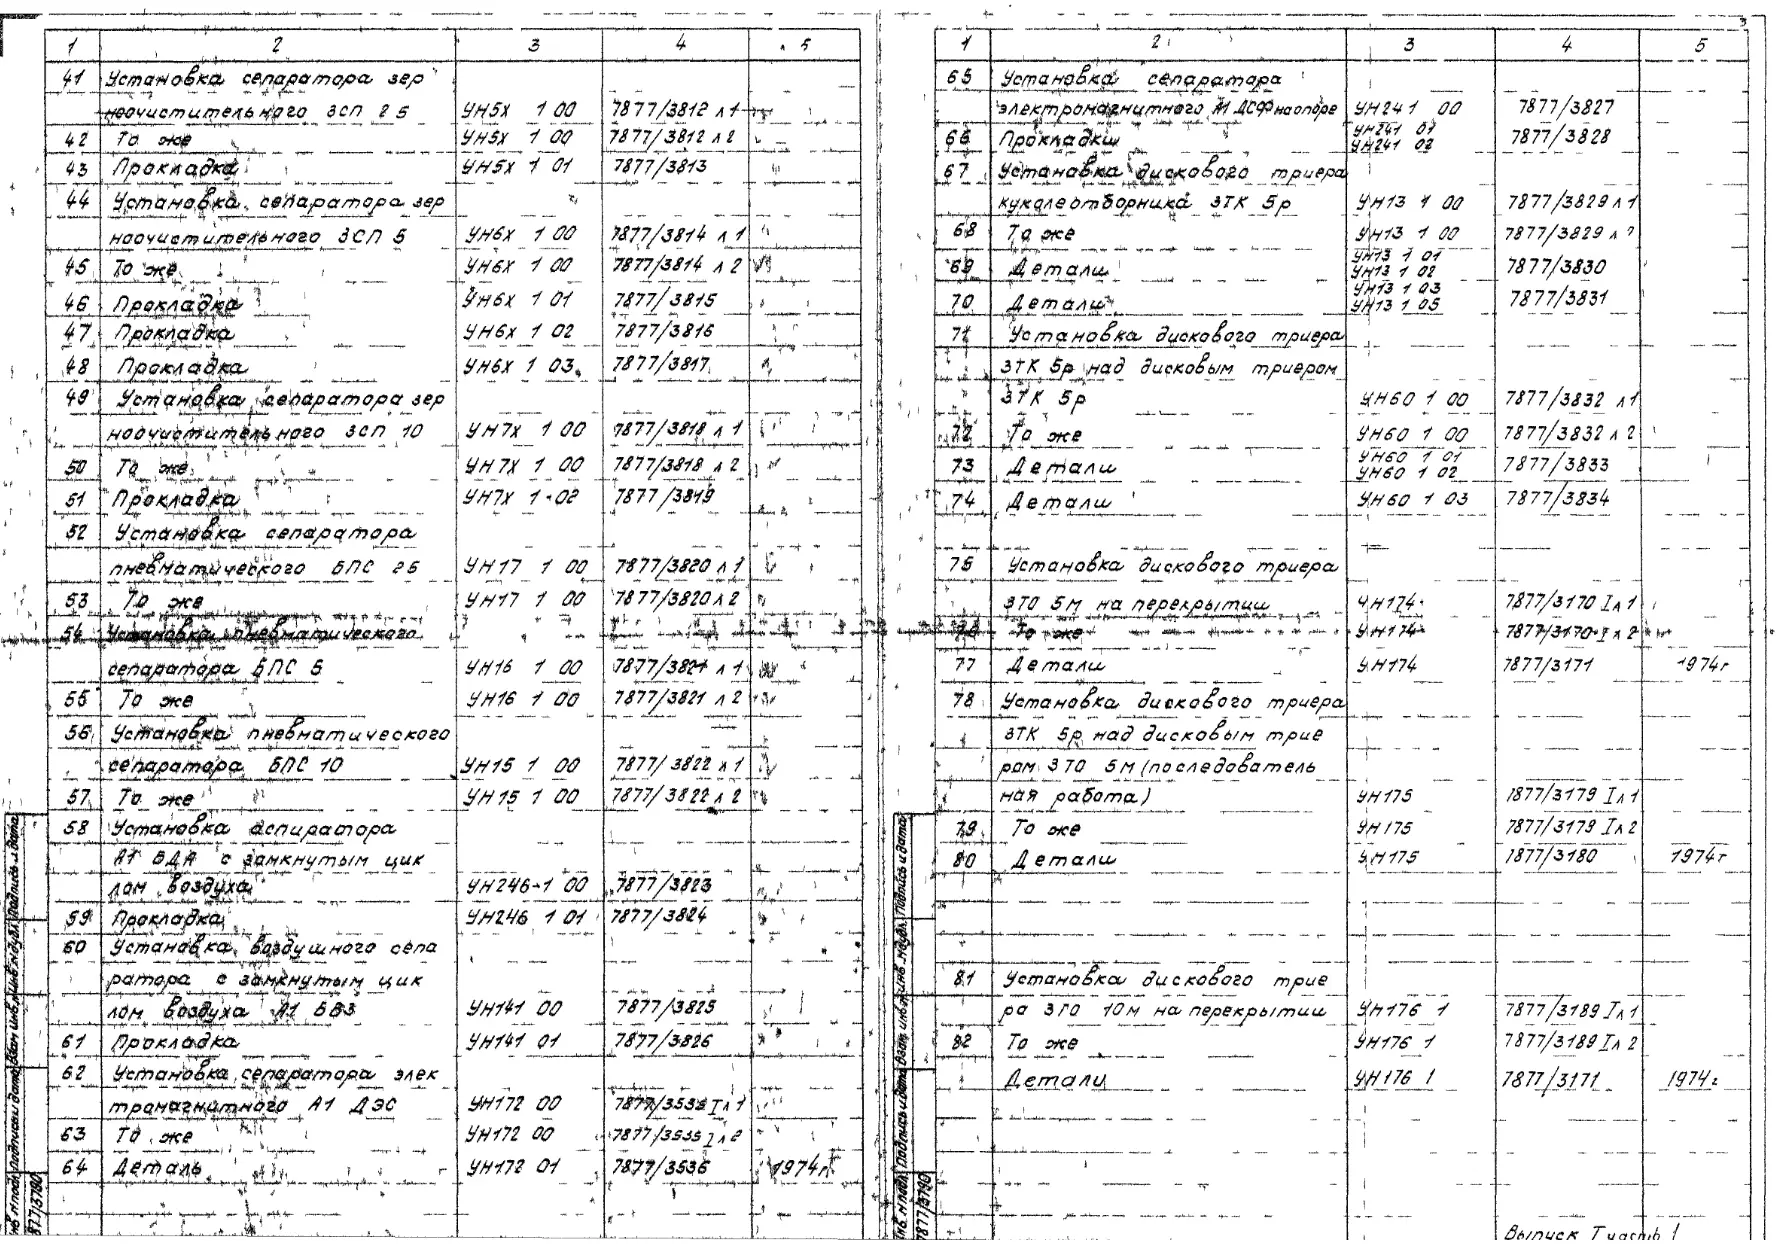 3
1 2 3 4 5
41 Установка сепаратора зер
ноочистительного ЗСП 25 УН5Х 1 00 7877/3812 л 1
42 То же УН5Х 1 00 7877/3812 л 2
43 Прокладка УН5Х 1 01 7877/3813
44 Установка сепаратора зер
ноочистительного ЗСП 5 УН6Х 1 00 7877/3814 л 1
45 То же УН6Х 1 00 7877/3814 л 2
46 Прокладка УН6Х 1 01 7877/3815
47 Прокладка УН6Х 1 02 7877/3816
48 Прокладка УН6Х 1 03 7877/3817
49 Установка сепаратора зер
ноочистительного ЗСП 10 УН7Х 1 00 7877/3818 л 1
50 То же УН7Х 1 00 7877/3818 л 2
51 Прокладка УН7Х 1 02 7877/3819
52 Установка сепаратора
пневматического БПС 25 УН17 1 00 7877/3820 л 1
53 То же УН17 1 00 7877/3820 л 2
54 Установка пневматического
сепаратора БПС 5 УН16 1 00 7877/3821 л 1
55 То же УН16 1 00 7877/3821 л 2
56 Установка пневматического
сепаратора БПС 10 УН15 1 00 7877/3822 л 1
57 То же УН15 1 00 7877/3822 л 2
58 Установка аспиратора
А1 БДА с замкнутым цик
лом воздуха УН246-1 00 7877/3823
59 Прокладка УН246 1 01 7877/3824
60 Установка воздушного сепа
ратора с замкнутым цик
лом воздуха А1 БВЗ УН141 00 7877/3825
61 Прокладка УН141 01 7877/3826
62 Установка сепаратора элек
тромагнитного А1 ДЭС УН172 00 7877/3535 I л 1
63 То же УН172 00 7877/3535 I л 2
64 Деталь УН172 01 7877/3536 1974г
Подпись и дата
Взам инв.
Инв № подл
877/3790
1 2 3 4 5
65 Установка сепаратора
электромагнитного А1 ДСФ на опоре УН241 00 7877/3827
66 Прокладки УН241 01
УН241 02 7877/3828
67 Установка дискового триера
куклеотборника ЗТК 5р УН13 1 00 7877/3829 л 1
68 То же УН13 1 00 7877/3829 л 2
69 Детали УН13 1 01
УН13 1 02 7877/3830
70 Детали УН13 1 03
УН13 1 05 7877/3831
71 Установка дискового триера
ЗТК 5р над дисковым триером
ЗТК 5р УН60 1 00 7877/3832 л 1
72 То же УН60 1 00 7877/3832 л 2
73 Детали УН60 1 01
УН60 1 02 7877/3833
74 Детали УН60 1 03 7877/3834
75 Установка дискового триера
ЗТО 5М на перекрытии УН174 7877/3170 I л 1
76 То же УН174 7877/3170 I л 2
77 Детали УН174 7877/3171 1974г
78 Установка дискового триера
ЗТК 5р над дисковым трие
ром ЗТО 5М (последователь
ная работа) УН175 7877/3179 I л 1
79 То же УН175 7877/3179 I л 2
80 Детали УН175 7877/3180 1974г
81 Установка дискового трие
ра ЗТО 10М на перекрытии УН176 1 7877/3189 I л 1
82 То же УН176 1 7877/3189 I л 2
Детали УН176 1 7877/3171 1974г
Подпись и дата
Инв № подл
877/3790
Выпуск I часть 1